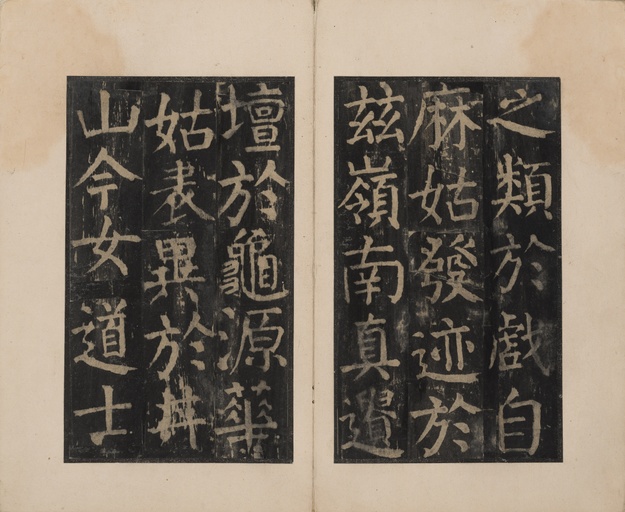 之類於戲自
麻姑發迹於
兹嶺南真遺
壇於龜源華
姑表異於井
山今女道士